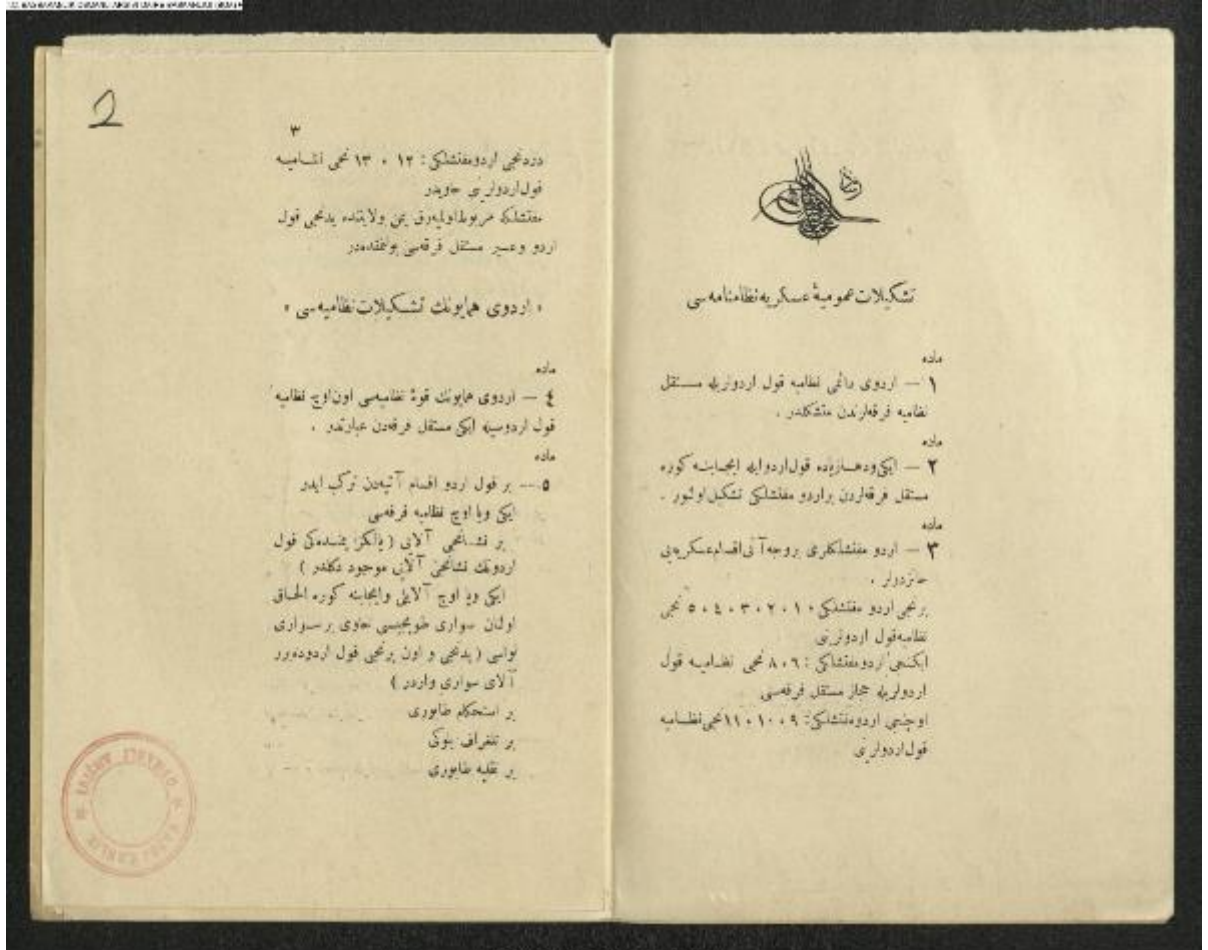 تشكيلات عموميهٔ عسكريه نظامنامه سى
ماده
١ — اردوى دائمى نظاميه قول اردولريله مستقل
نظاميه فرقه‌لرندن متشكلدر .
ماده
٢ — ايكى ودها زياده قول اردوايله ايجابنه كوره
مستقل فرقه‌لردن براردو مفتشلكى تشكيل اولنور .
ماده
٣ — اردو مفتشلكلرى بروجه آتى اقسام عسكريه‌يى
حائزدرلر .
برنجى اردو مفتشلكى ١ ، ٢ ، ٣ ، ٤ ، ٥ نجى
نظاميه قول اردولرينى
ايكنجى اردومفتشلكى : ٦ ، ٨ نجى نظاميه قول
اردولريله حجاز مستقل فرقه‌سى
اوچنجى اردومفتشلكى : ٩ ، ١٠ ، ١١ نجى نظاميه
قول اردولرينى
2
٣
دردنجى اردومفتشلكى : ١٢ ، ١٣ نجى نظاميه
قول اردولرينى حاويدر
مفتشلكه مربوط اوليه‌رق يمن ولايتنده يدنجى قول
اردو وعسير مستقل فرقه‌سى بولنمقده‌در
« اردوى همايونك تشكيلات نظاميه‌سى »
ماده
٤ — اردوى همايونك قوهٔ نظاميه‌سى اون اوچ نظاميه
قول اردوسيله ايكى مستقل فرقه‌دن عبارتدر .
ماده
٥ — بر قول اردو اقسام آتيه‌دن تركب ايدر
ايكى ويا اوچ نظاميه فرقه‌سى
بر نشانجى آلايى ( يالكز يمنده‌كى قول
اردونك نشانجى آلايى موجود دكلدر )
ايكى ويا اوچ آلايلى وايجابنه كوره الحاق
اولنان سوارى طوپجيسى حاوى بر سوارى
لواسى ( يدنجى و اون برنجى قول اردوده‌برر
آلاى سوارى واردر )
بر استحكام طابورى
بر تلغراف بلوكى
بر نقليه طابورى